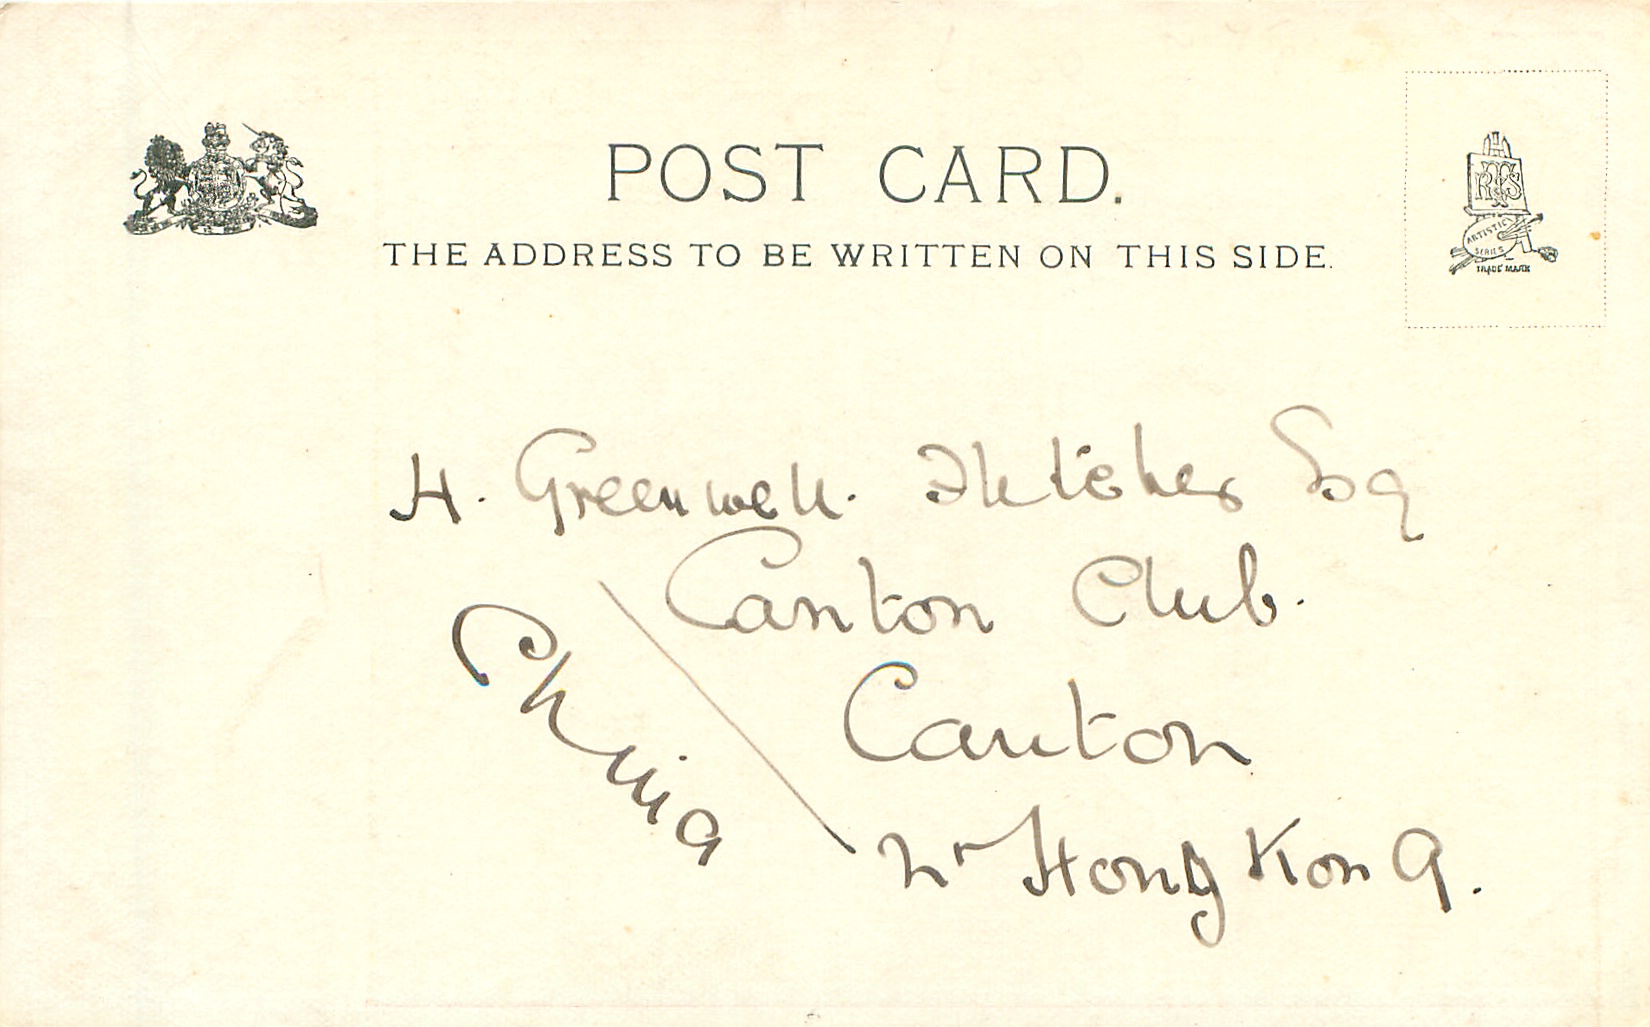 POST CARD.
THE ADDRESS TO BE WRITTEN ON THIS SIDE.
RTS
ARTISTIC
SERIES
TRADE MARK
H. Greenwell. Fletcher Esq
Canton Club.
Canton
Nr Hong Kong.
China